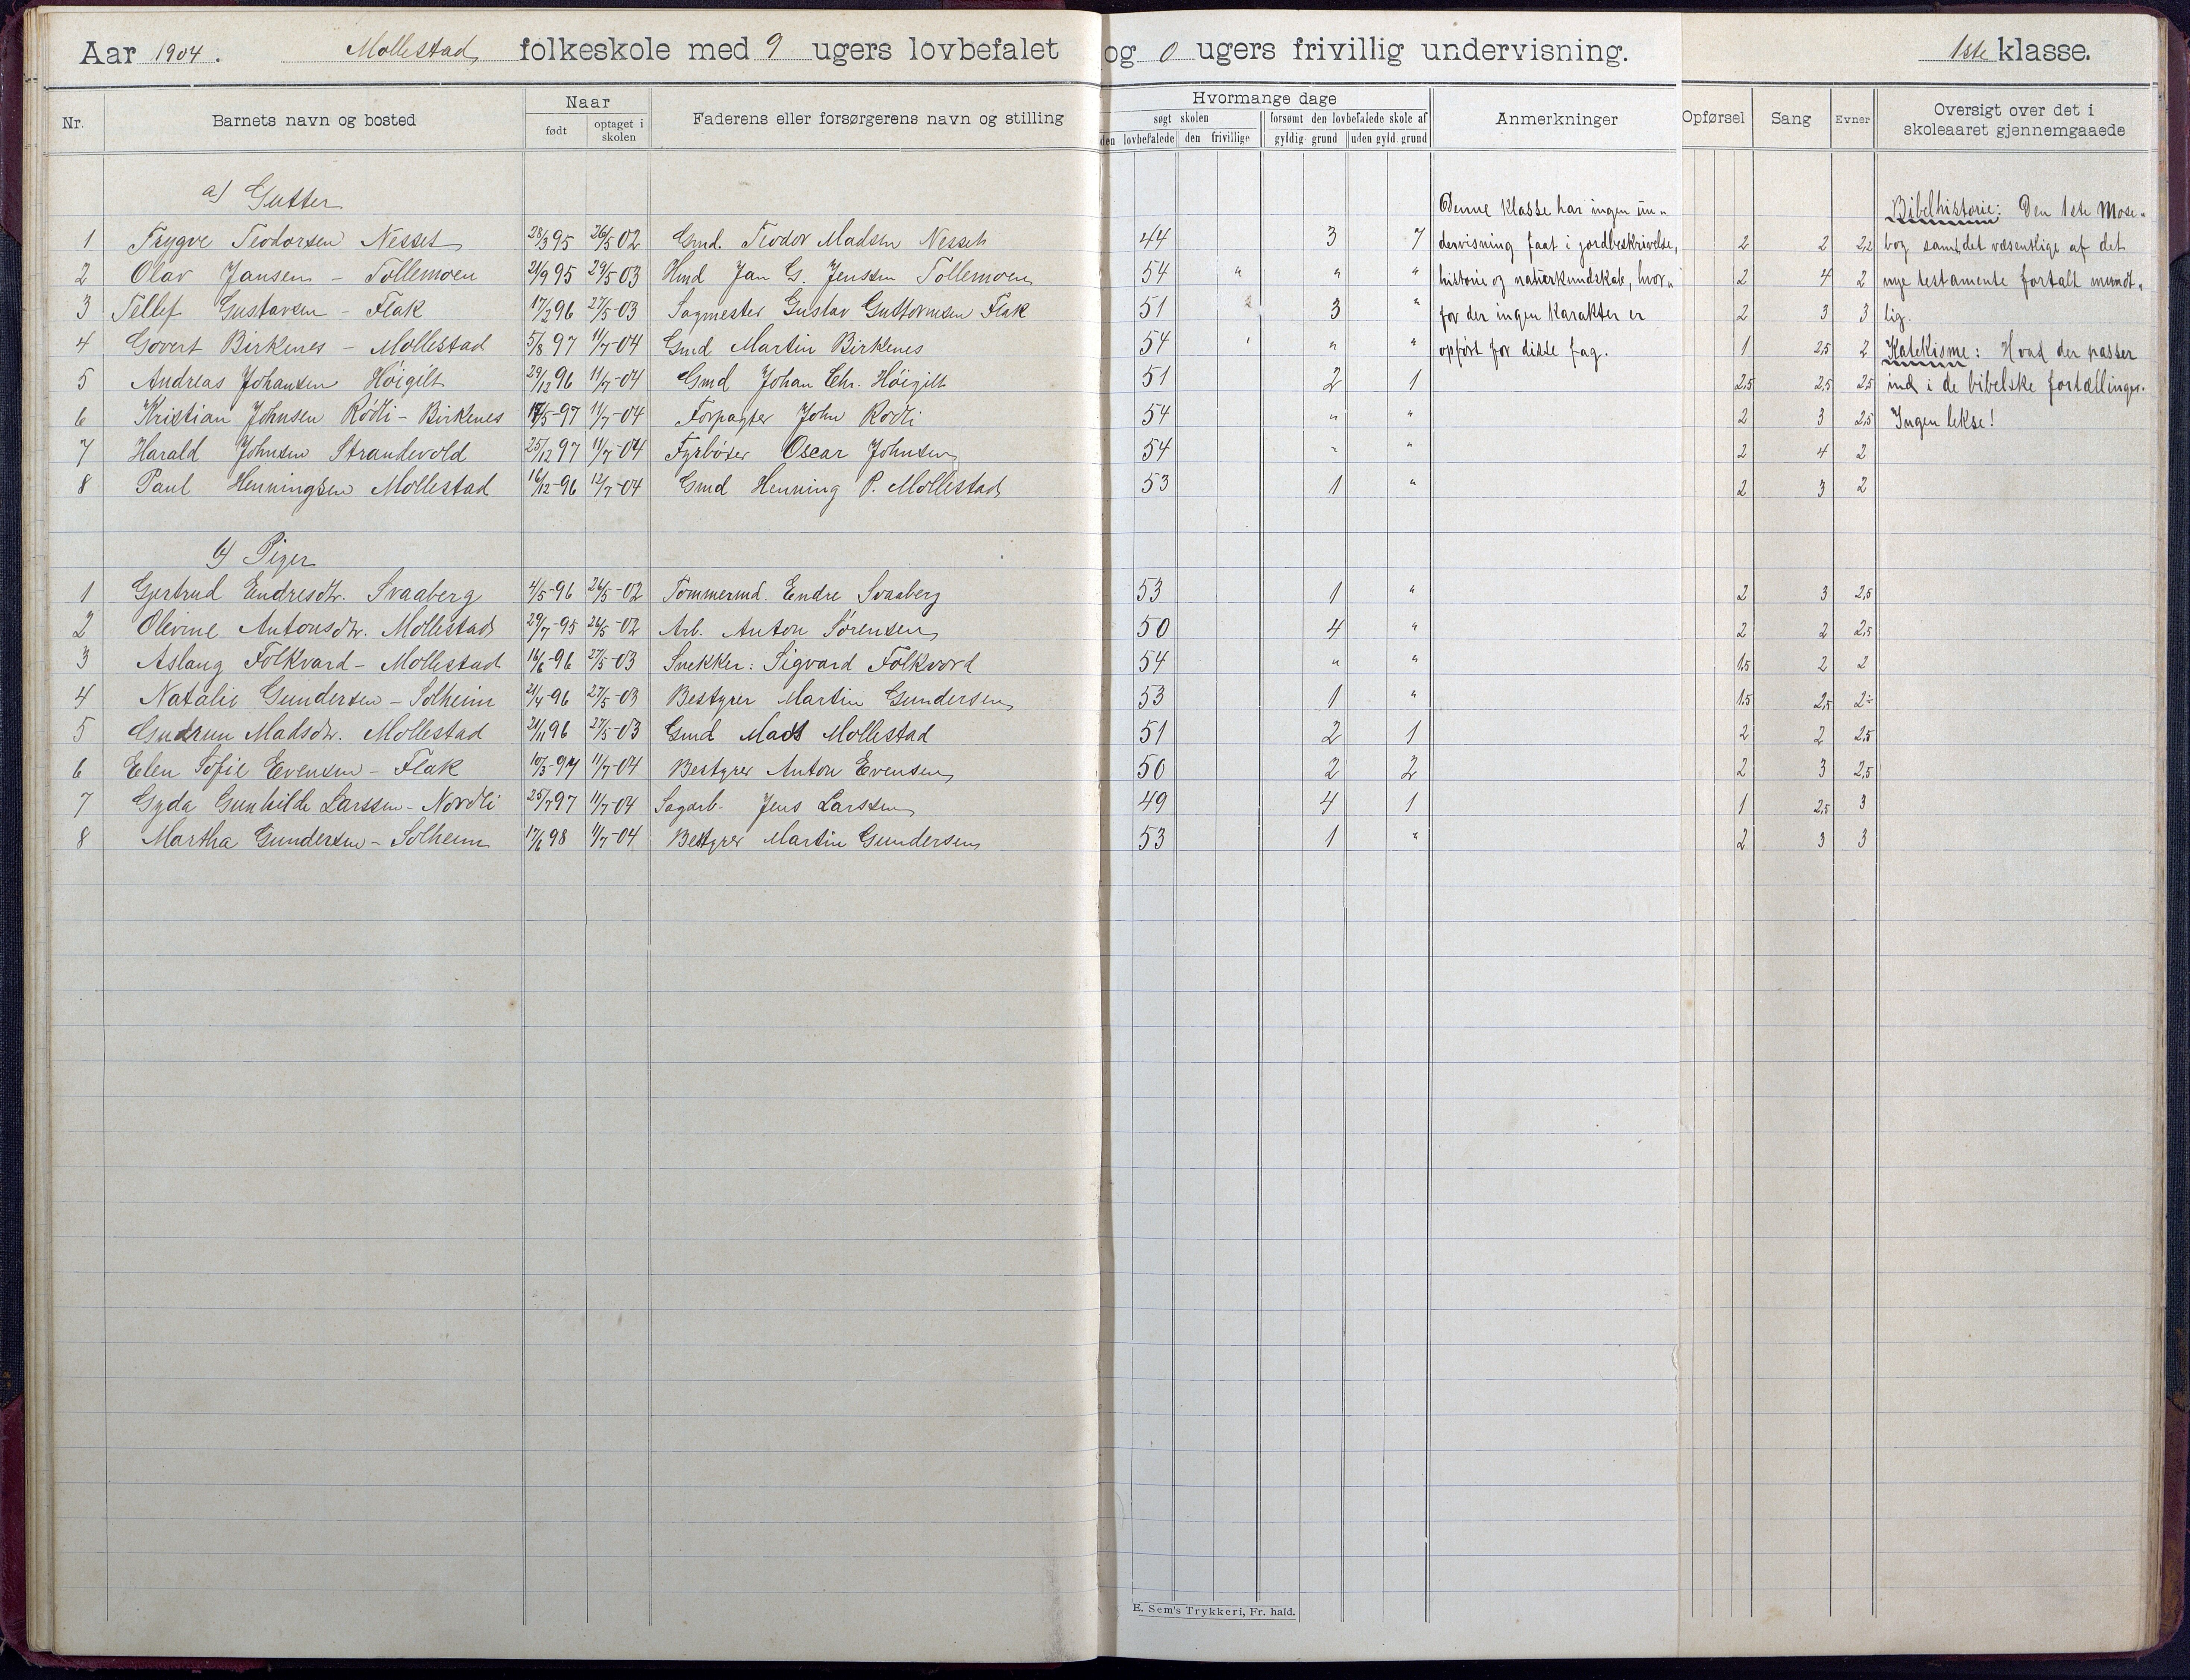 Aar 1904. Mollestad folkeskole med 9 ugers lovbefalet og 0 ugers frivillig undervisning. 1ste klasse.
Nr. Barnets navn og bosted Naar født optaget i skolen Faderens eller forsørgerens navn og stilling Hvormange dage søgt skolen den lovbefalede den frivillige forsømt den lovbefalede skole af gyldig grund uden gyld. grund Anmerkninger Opførsel Sang Evner Oversigt over det i skoleaaret gjennemgaaede
a) Gutter Denne klasse har ingen un- Bibelhistorie: Den 1ste Mose-
1 Trygve Teodorsen Nesset 28/3 95 26/5 02 Gmd. Teodor Madsen Nesset 44 3 7 dervisning faat i jordbeskrivelse, 2 2 2,2 bog samt det væsentlige af det
2 Olav Jansen - Tollemoen 21/9 95 29/5 03 Hmd Jan G. Jenssen Tollemoen 54 " " " historie og naturkundskab, hvor- 2 4 2 nye testamente fortalt mundt-
3 Tellef Gustavsen - Flak 17/2 96 27/5-03 Sagmester Gustav Guttormsen Flak 51 3 " for der ingen karakter er 2 3 3 lig.
4 Govert Birkenes - Mollestad 5/8 97 11/7-04 Gmd Martin Birkenes 54 " " opført for disse fag. 1 2,5 2 Katekisme: Hvad der passer
5 Andreas Johansen Høigilt 29/12 96 11/7-04 Gmd Johan Chr. Høigilt 51 2 1 2,5 2,5 2,5 ind i de bibelske fortællinger.
6 Kristian Johnsen Rodli - Birkenes 17/5-97 11/7-04 Forpagter John Rodli 54 " " 2 3 2,5 Ingen lekse!
7 Harald Johnsen Strandevold 25/12 97 11/7-04 Fyrbøter Oscar Johnsen 54 " " 2 4 2
8 Paul Henningsen Mollestad 16/12-96 12/7-04 Gmd Henning P. Mollestad 53 1 " 2 3 2
b) Piger
1 Gjertrud Endresdtr. Svaaberg 4/5-96 26/5-02 Tømmermd. Endre Svaaberg 53 1 " 2 3 2,5
2 Olevine Antonsdtr. Mollestad 29/7-95 26/5-02 Arb. Anton Sørensen 50 4 " 2 2 2,5
3 Aslaug Folkvard - Mollestad 16/6-96 27/5-03 Snekker: Sigvard Folkvord 54 " " 1,5 2 2
4 Natalie Gundersen - Solheim 21/4-96 27/5-03 Bestyrer Martin Gundersen 53 1 " 1,5 2,5 2-
5 Gudrun Madsdtr. Mollestad 21/11 96 27/5-03 Gmd Mads Mollestad 51 2 1 2 2 2,5
6 Elen Sofie Evensen - Flak 10/3-97 11/7-04 Bestyrer Anton Evensen 50 2 2 2 3 2,5
7 Gyda Gunhilde Larssen - Nordli 25/7 97 11/7-04 Sagarb. Jens Larssen 49 4 1 1 2,5 3
8 Martha Gundersen - Solheim 17/6 98 11/7-04 Bestyrer Martin Gundersen 53 1 " 2 3 3
E. Sem's Trykkeri, Fr. hald.